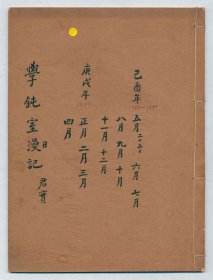 己酉年
五月 六月 七月
八月 九月 十月
十一月 十二月
庚戌年
正月 二月 三月
四月
學鈍室漫記
日
君實